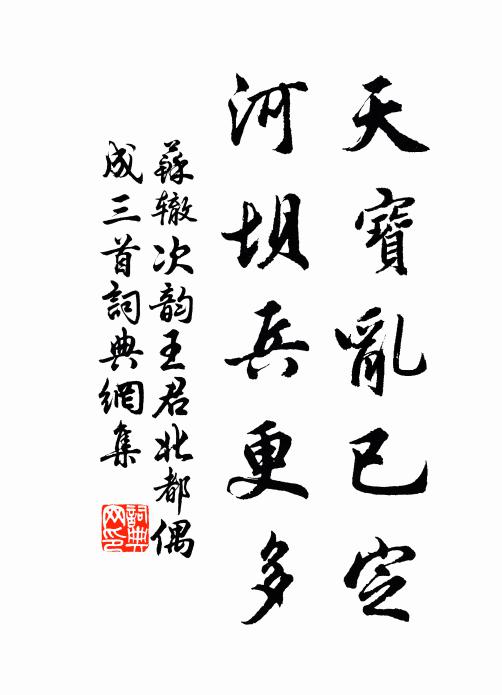 天寶亂已定
河坝兵更多
蘇辙次韵王君北都偶
成三首詞典網集
詞典
网印